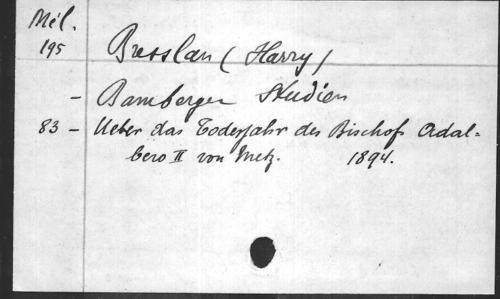 Mél.
195 Bresslau (Harry)
- Bamberger Studien
83 - Ueber das Todesjahr des Bischofs Adal=
bero II von Metz. 1894.